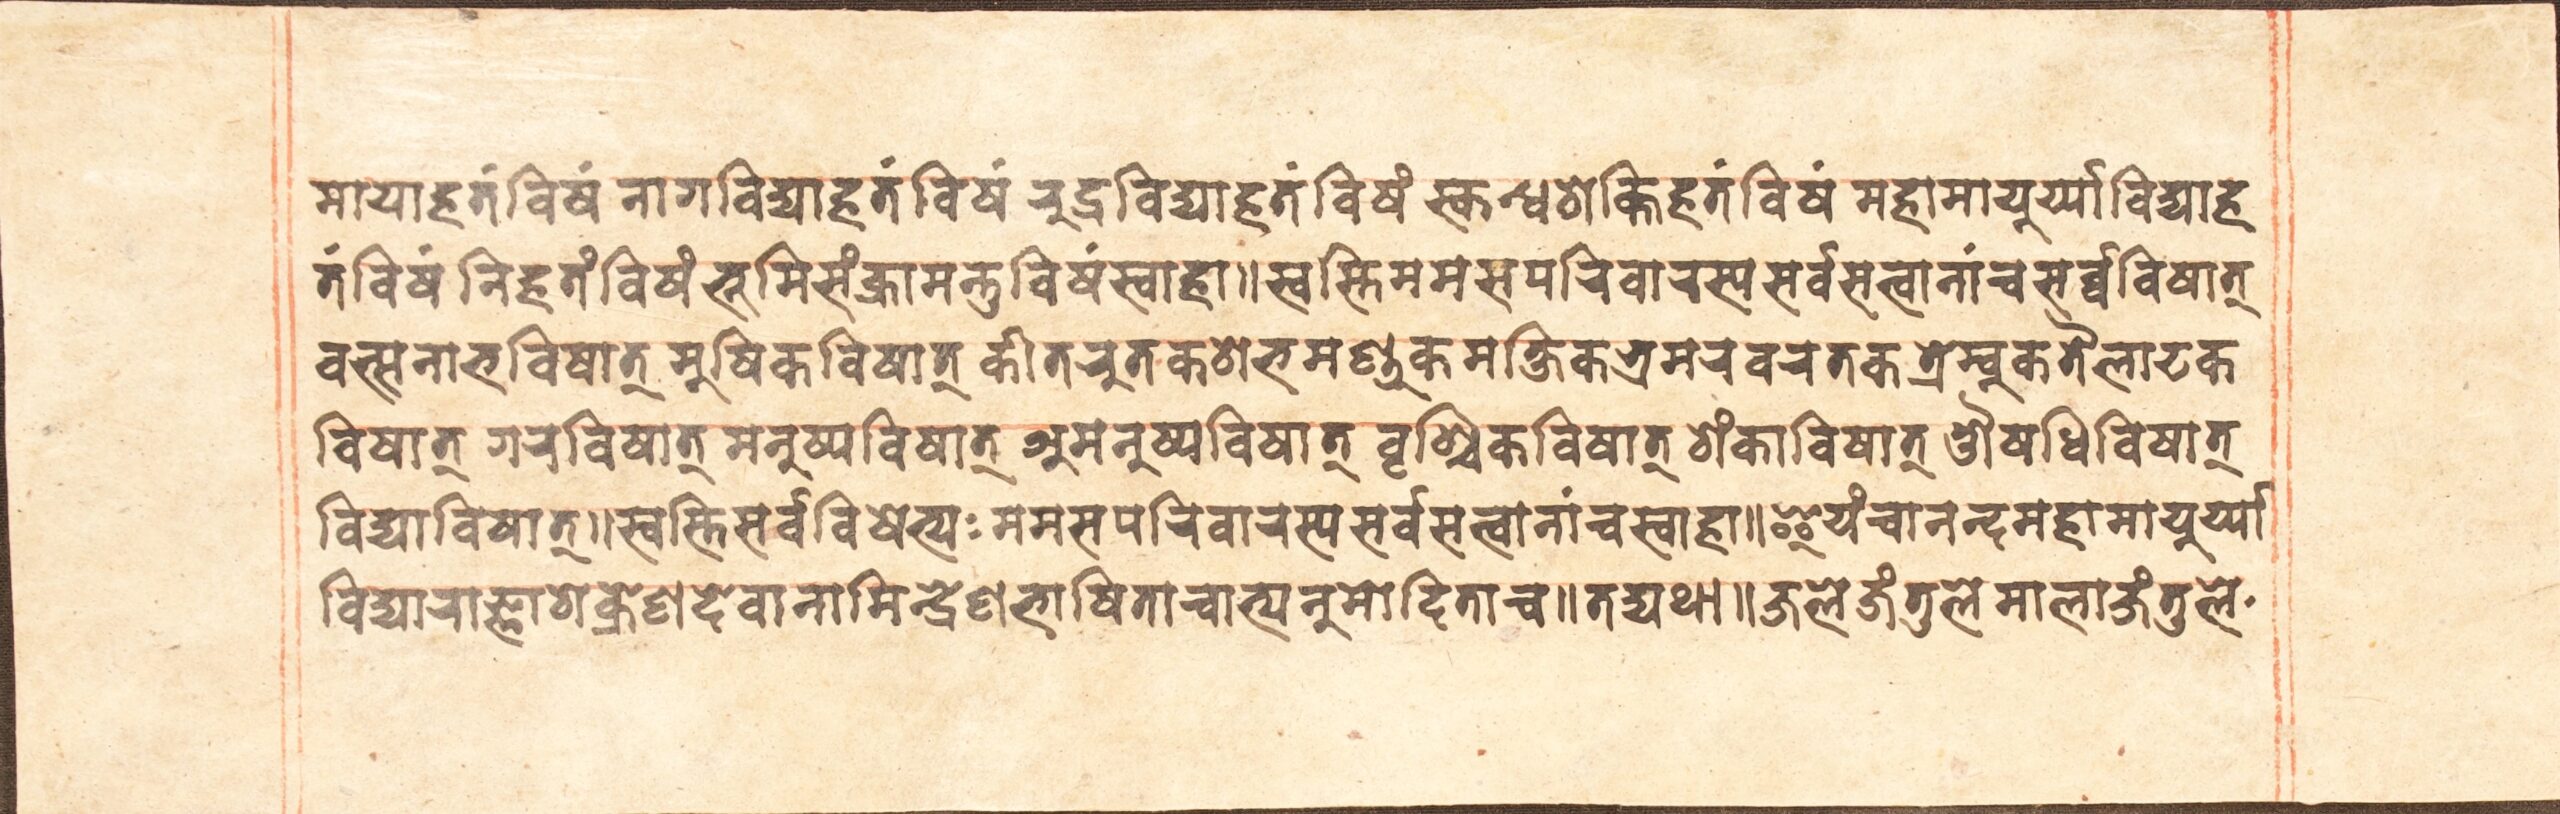 मायाहतंविषं नागविद्याहतंविषं रुद्रविद्याहतंविषं स्कन्धशक्तिहतंविषं महामायुर्य्याविद्याह
तंविषं निहतंविषं भूमिसंक्रामन्तुविषंस्वाहा॥स्वस्तिममसपरिवारस्यसर्वसत्वानांचसर्व्वविषात्
वत्सनाभविषात् मुषिकविषात् कीतरुतकशेभमण्डुकमक्षिकभ्रमरवरतकत्रेम्बुकतैलाटक
विषात् गरविषात् मनुष्यविषात् अमनुष्यविषात् वृश्चिकविषात् शंकाविषात् औषधिविषात्
विद्याविषात्॥स्वस्तिसर्वविषेभ्यः ममसपरिवारस्यसर्वसत्वानांचस्वाहा॥इयंचानन्दमहामायुर्य्या
विद्याराज्ञाशक्रेणदेवानामिन्द्रेणभाषिताचाभ्यनुमोदिताच॥तद्यथा॥जलेजंतुलेमालाजंतुले